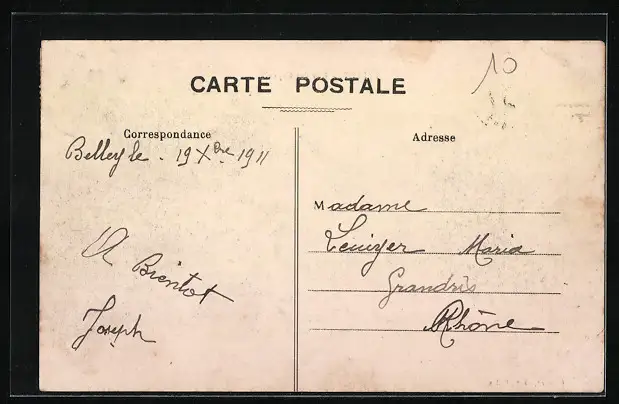 10
CARTE POSTALE
Correspondance
Adresse
Belley le. 19 Xbre 1911
Madame
Maria
A Bientot
Grandris
Joseph
Rhône